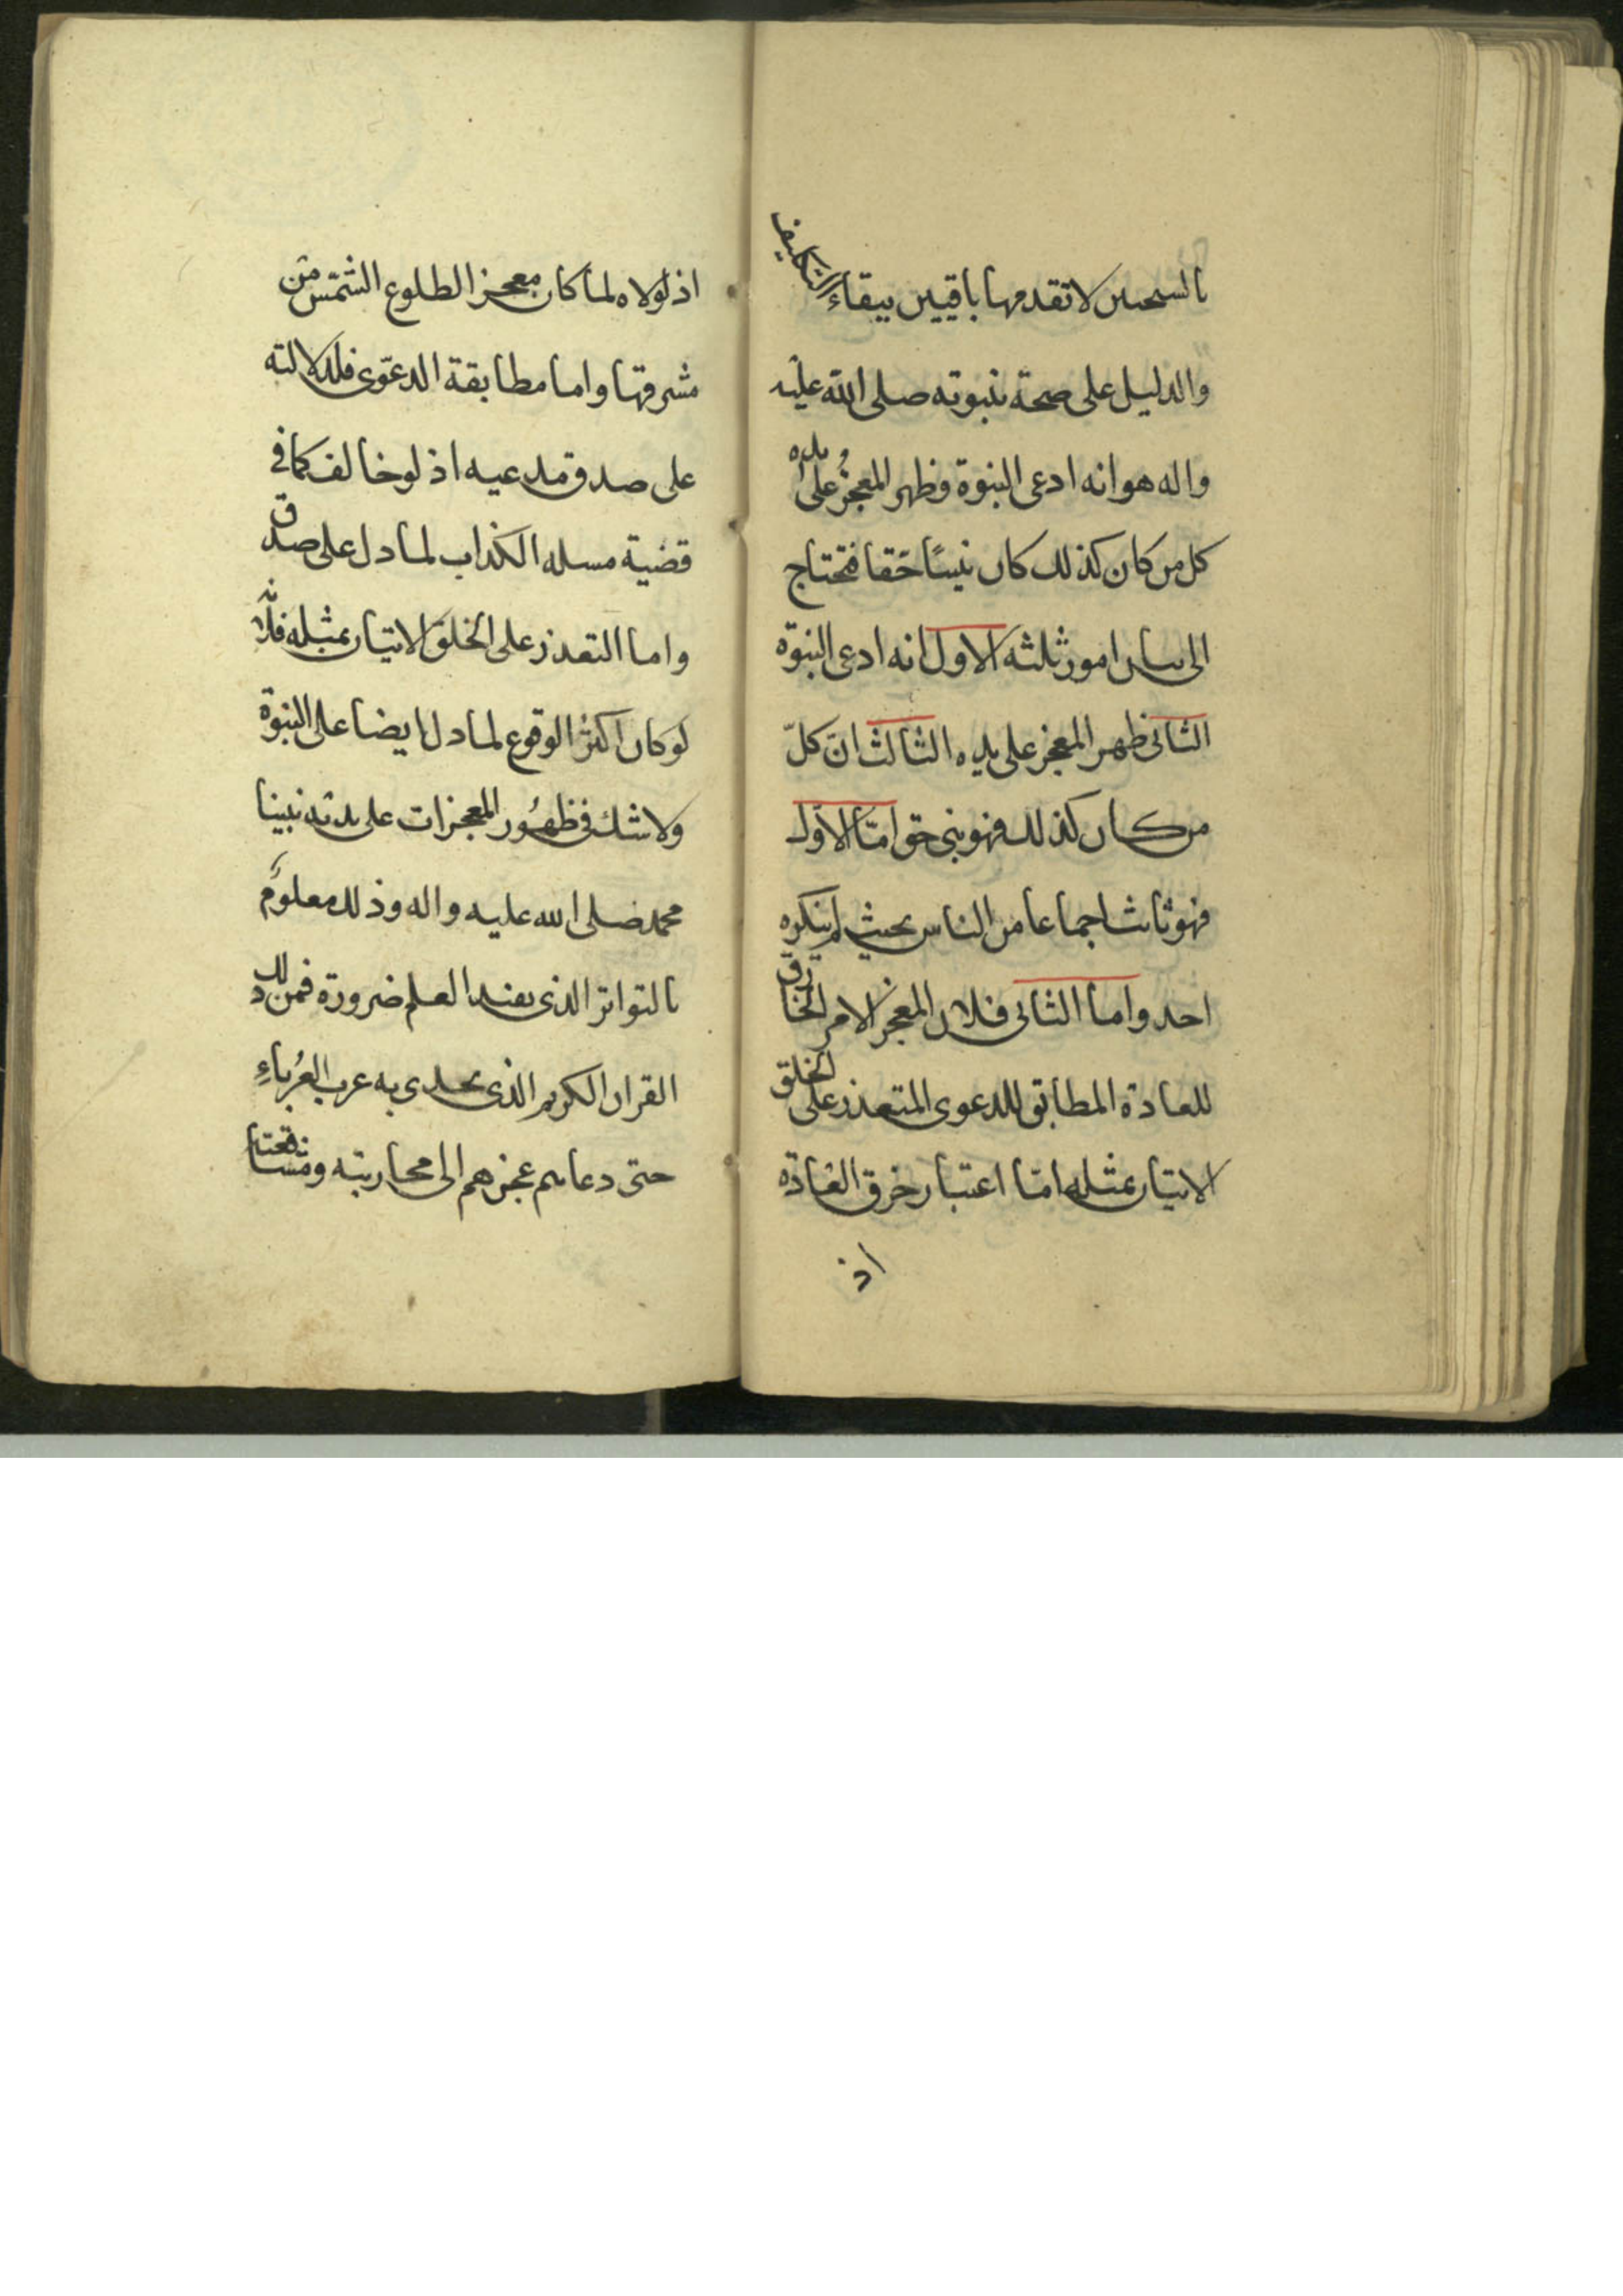 بالسحس لا تقدمها باقيين ببقاء التكليف
والدليل على صحة نبوته صلى الله عليه
واله هو انه ادعى النبوة وظهر المعجز على يده و
كل من كان كذلك كان نبيًا حقا فتحتاج
الى بيان امور ثلثه الاول انه ادعى النبوة
الثانى ظهر المعجز على يده الثالث انّ كلّ
من كان كذلك فهو نبى حق امّا الاوّل
فهو ثابت اجماعا من الناس بحيث لم ينكره
احد واما الثانى فلان المعجز الامر الخارق
للعادة المطابق للدعوى المتعذر على الخلق
الاتيان بمثله امّا اعتبار خرق العادة
اذ
اذ لولاه لما كان معجز الطلوع الشمس من
مشرقها واما مطابقة الدعوى فلدلالته
على صدق مدعيه اذ لو خالف كما في
قضية مسيلمه الكذاب لما دل على صدق
واما التعذر على الخلق الاتيان بمثله فلانه
لو كان اكثر الوقوع لما دل ايضا على النبوة
ولا شك في ظهور المعجزات على يد نبينا
محمد صلى الله عليه واله وذلك معلوم
بالتواتر الذى يفيد العلم ضرورة فمن ذلك
القران الكريم الذى تحدى به عرب العرباء
حتى دعاهم عجزهم الى محاربته و